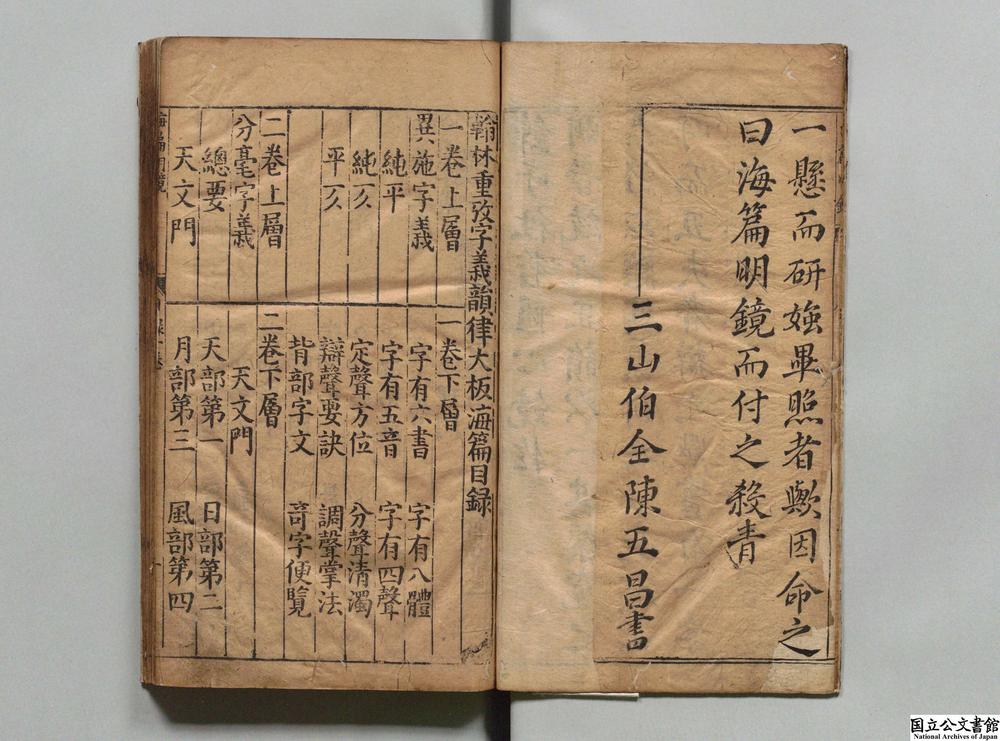 一懸而研媸畢照者歟因命之
曰海篇明鏡而付之殺青
三山伯全陳五昌書
翰林重攷字義韻律大板海篇目録
一卷上層
異施字義
純平
純仄
平仄
二卷上層
分毫字義
總要
天文門
一卷下層
字有六書 字有八體
字有五音 字有四聲
定聲方位 分聲清濁
辯聲要訣 調聲掌法
背部字文 奇字便覽
二卷下層
天文門
天部第一 日部第二
月部第三 風部第四
国立公文書館
National Archives of Japan